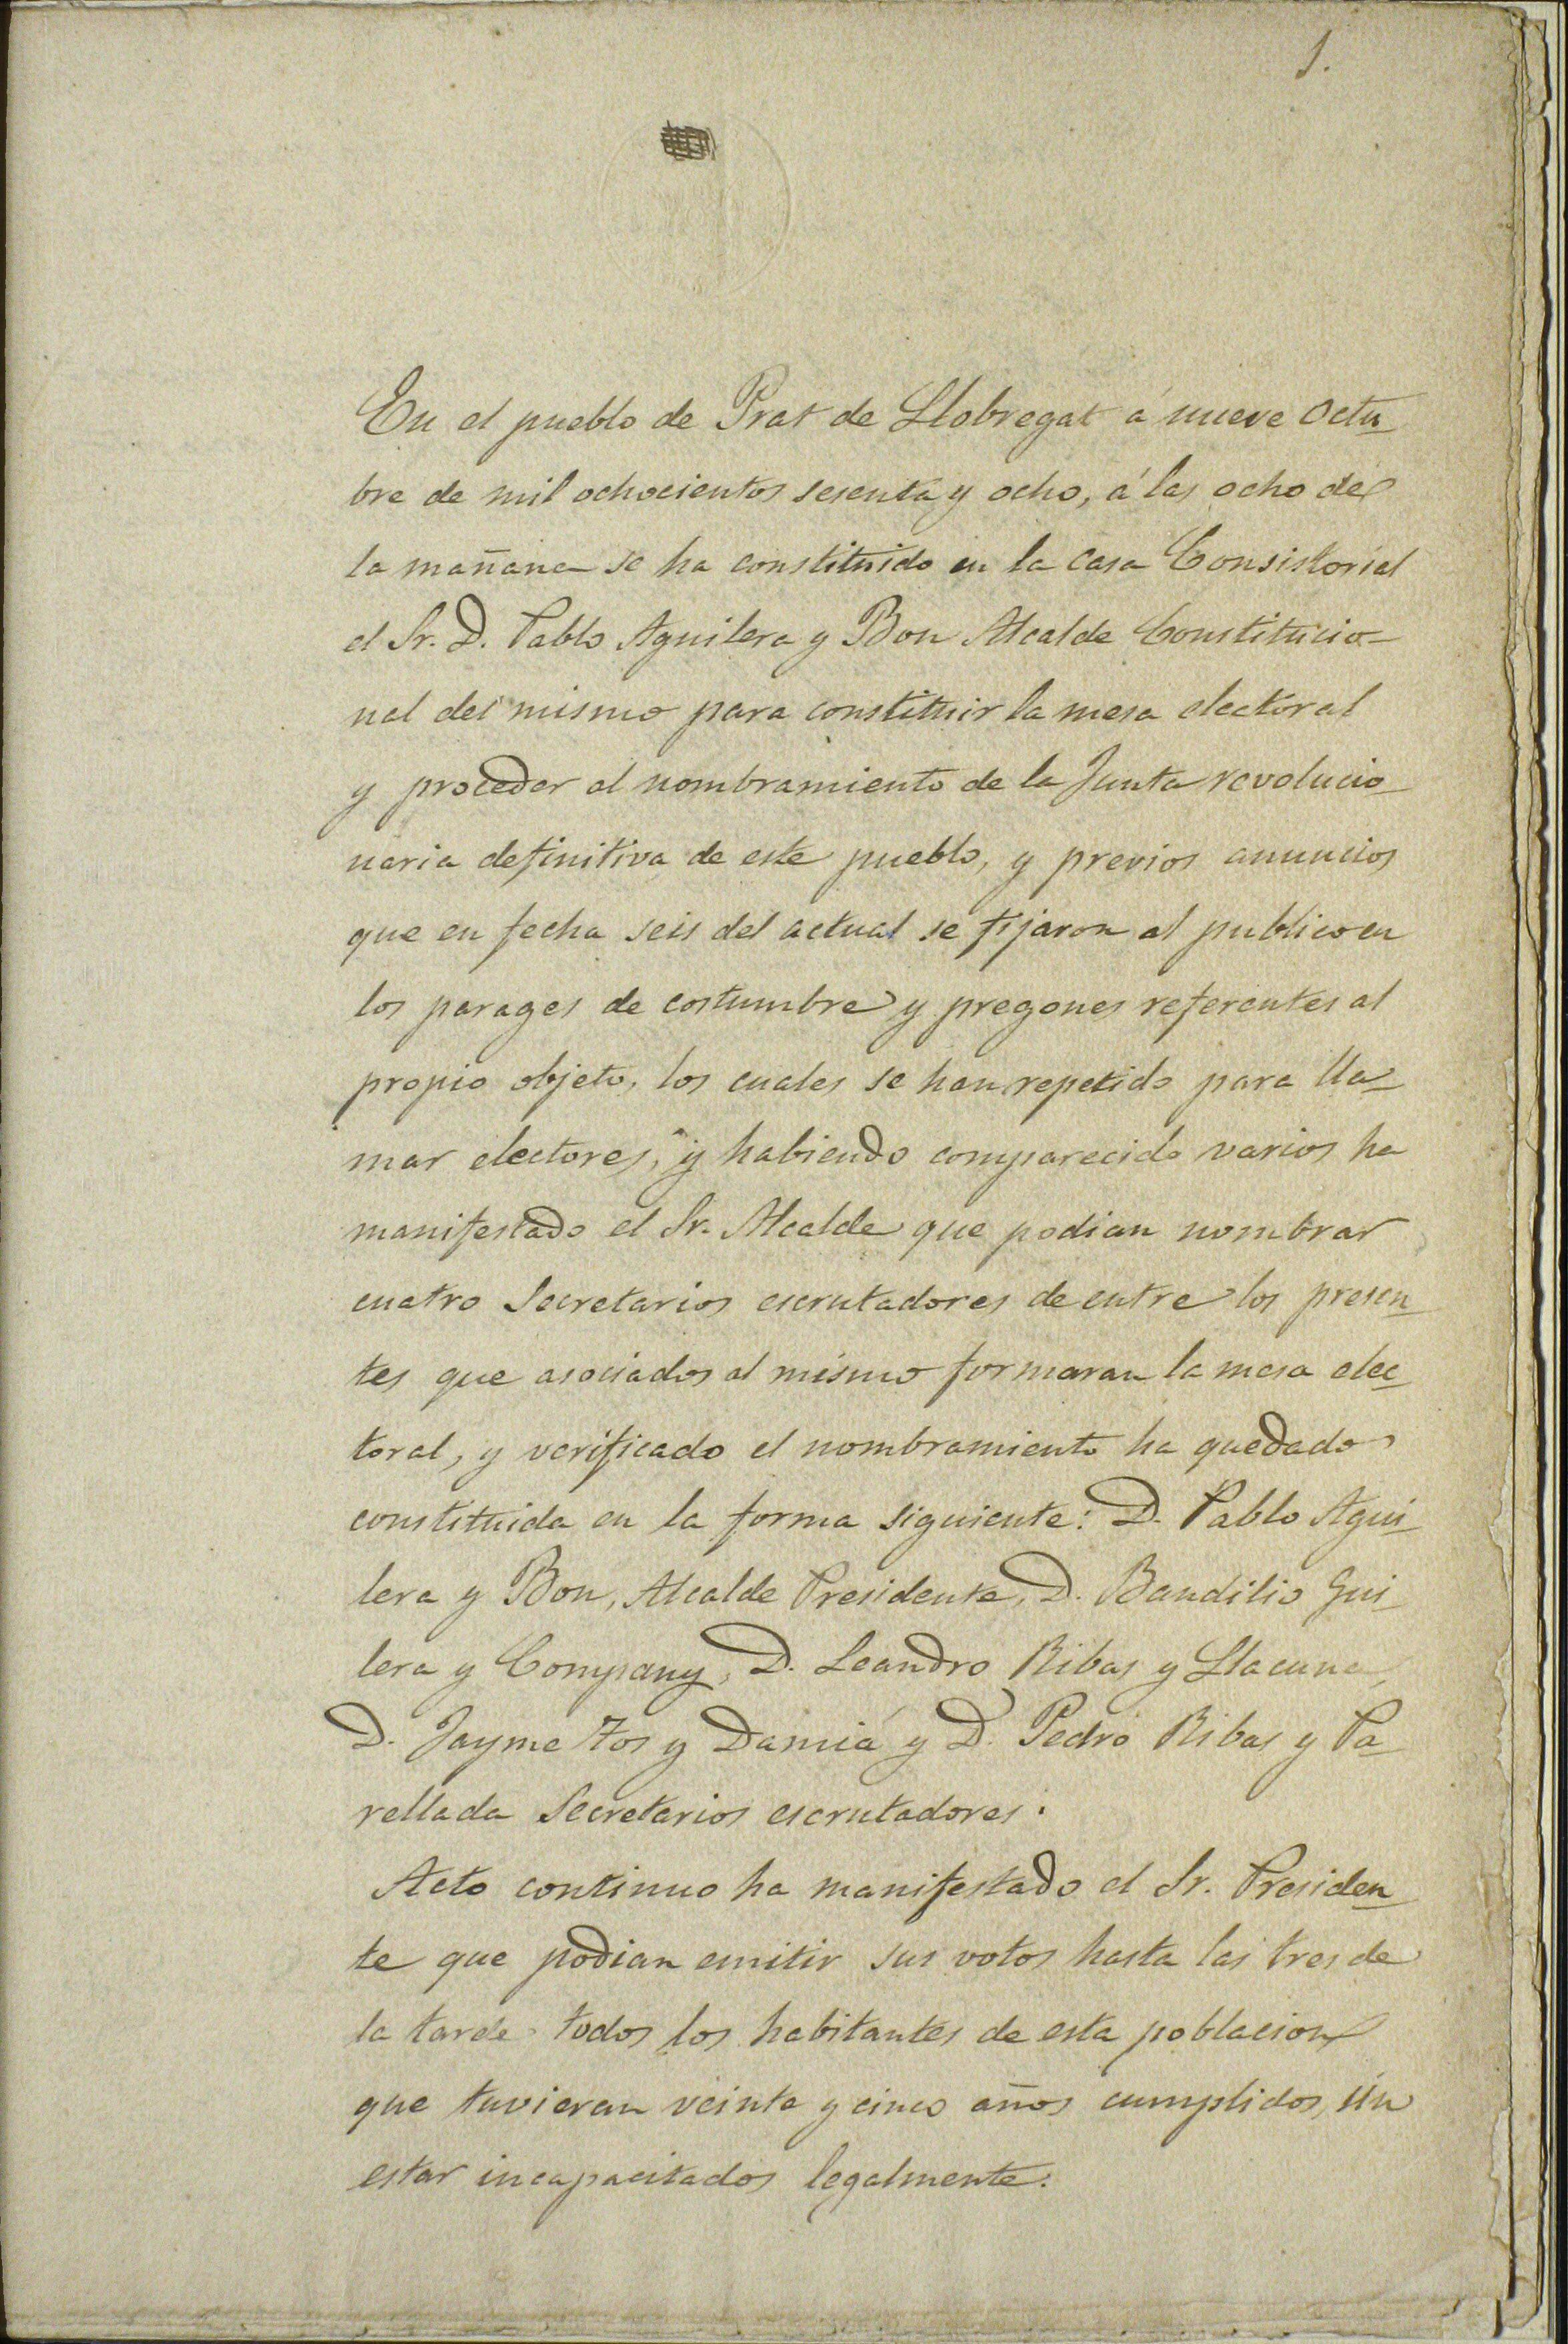 1.
En el pueblo de Prat de Llobregat á nueve Octu-
bre de mil ochocientos sesenta y ocho, á las ocho de
la mañana se ha constituido en la casa Consistorial
el Sr. D. Pablo Aguilera y Bon Alcalde Constitucio-
nal del mismo para constituir la mesa electoral
y proceder al nombramiento de la Junta revolucio-
naria definitiva de este pueblo, y previos anuncios
que en fecha seis del actual se fijaron al publico en
los parages de costumbre y pregones referentes al
propio objeto, los cuales se han repetido para lla-
mar electores, y habiendo comparecido varios ha
manifestado el Sr. Alcalde que podian nombrar
cuatro Secretarios escrutadores de entre los presen-
tes que asociados al mismo formaran la mesa elec-
toral, y verificado el nombramiento ha quedado
constituida en la forma siguiente: D. Pablo Agui-
lera y Bon, Alcalde Presidente, D. Baudilio Gui-
lera y Company, D. Leandro Ribas y Llacuna,
D. Jayme Tos y Damiá y D. Pedro Ribas y Pa-
rellada Secretarios escrutadores.
Acto continuo ha manifestado el Sr. Presiden-
te que podian emitir sus votos hasta las tres de
la tarde todos los habitantes de esta poblacion
que tuvieran veinte y cinco años cumplidos, sin
estar incapacitados legalmente.